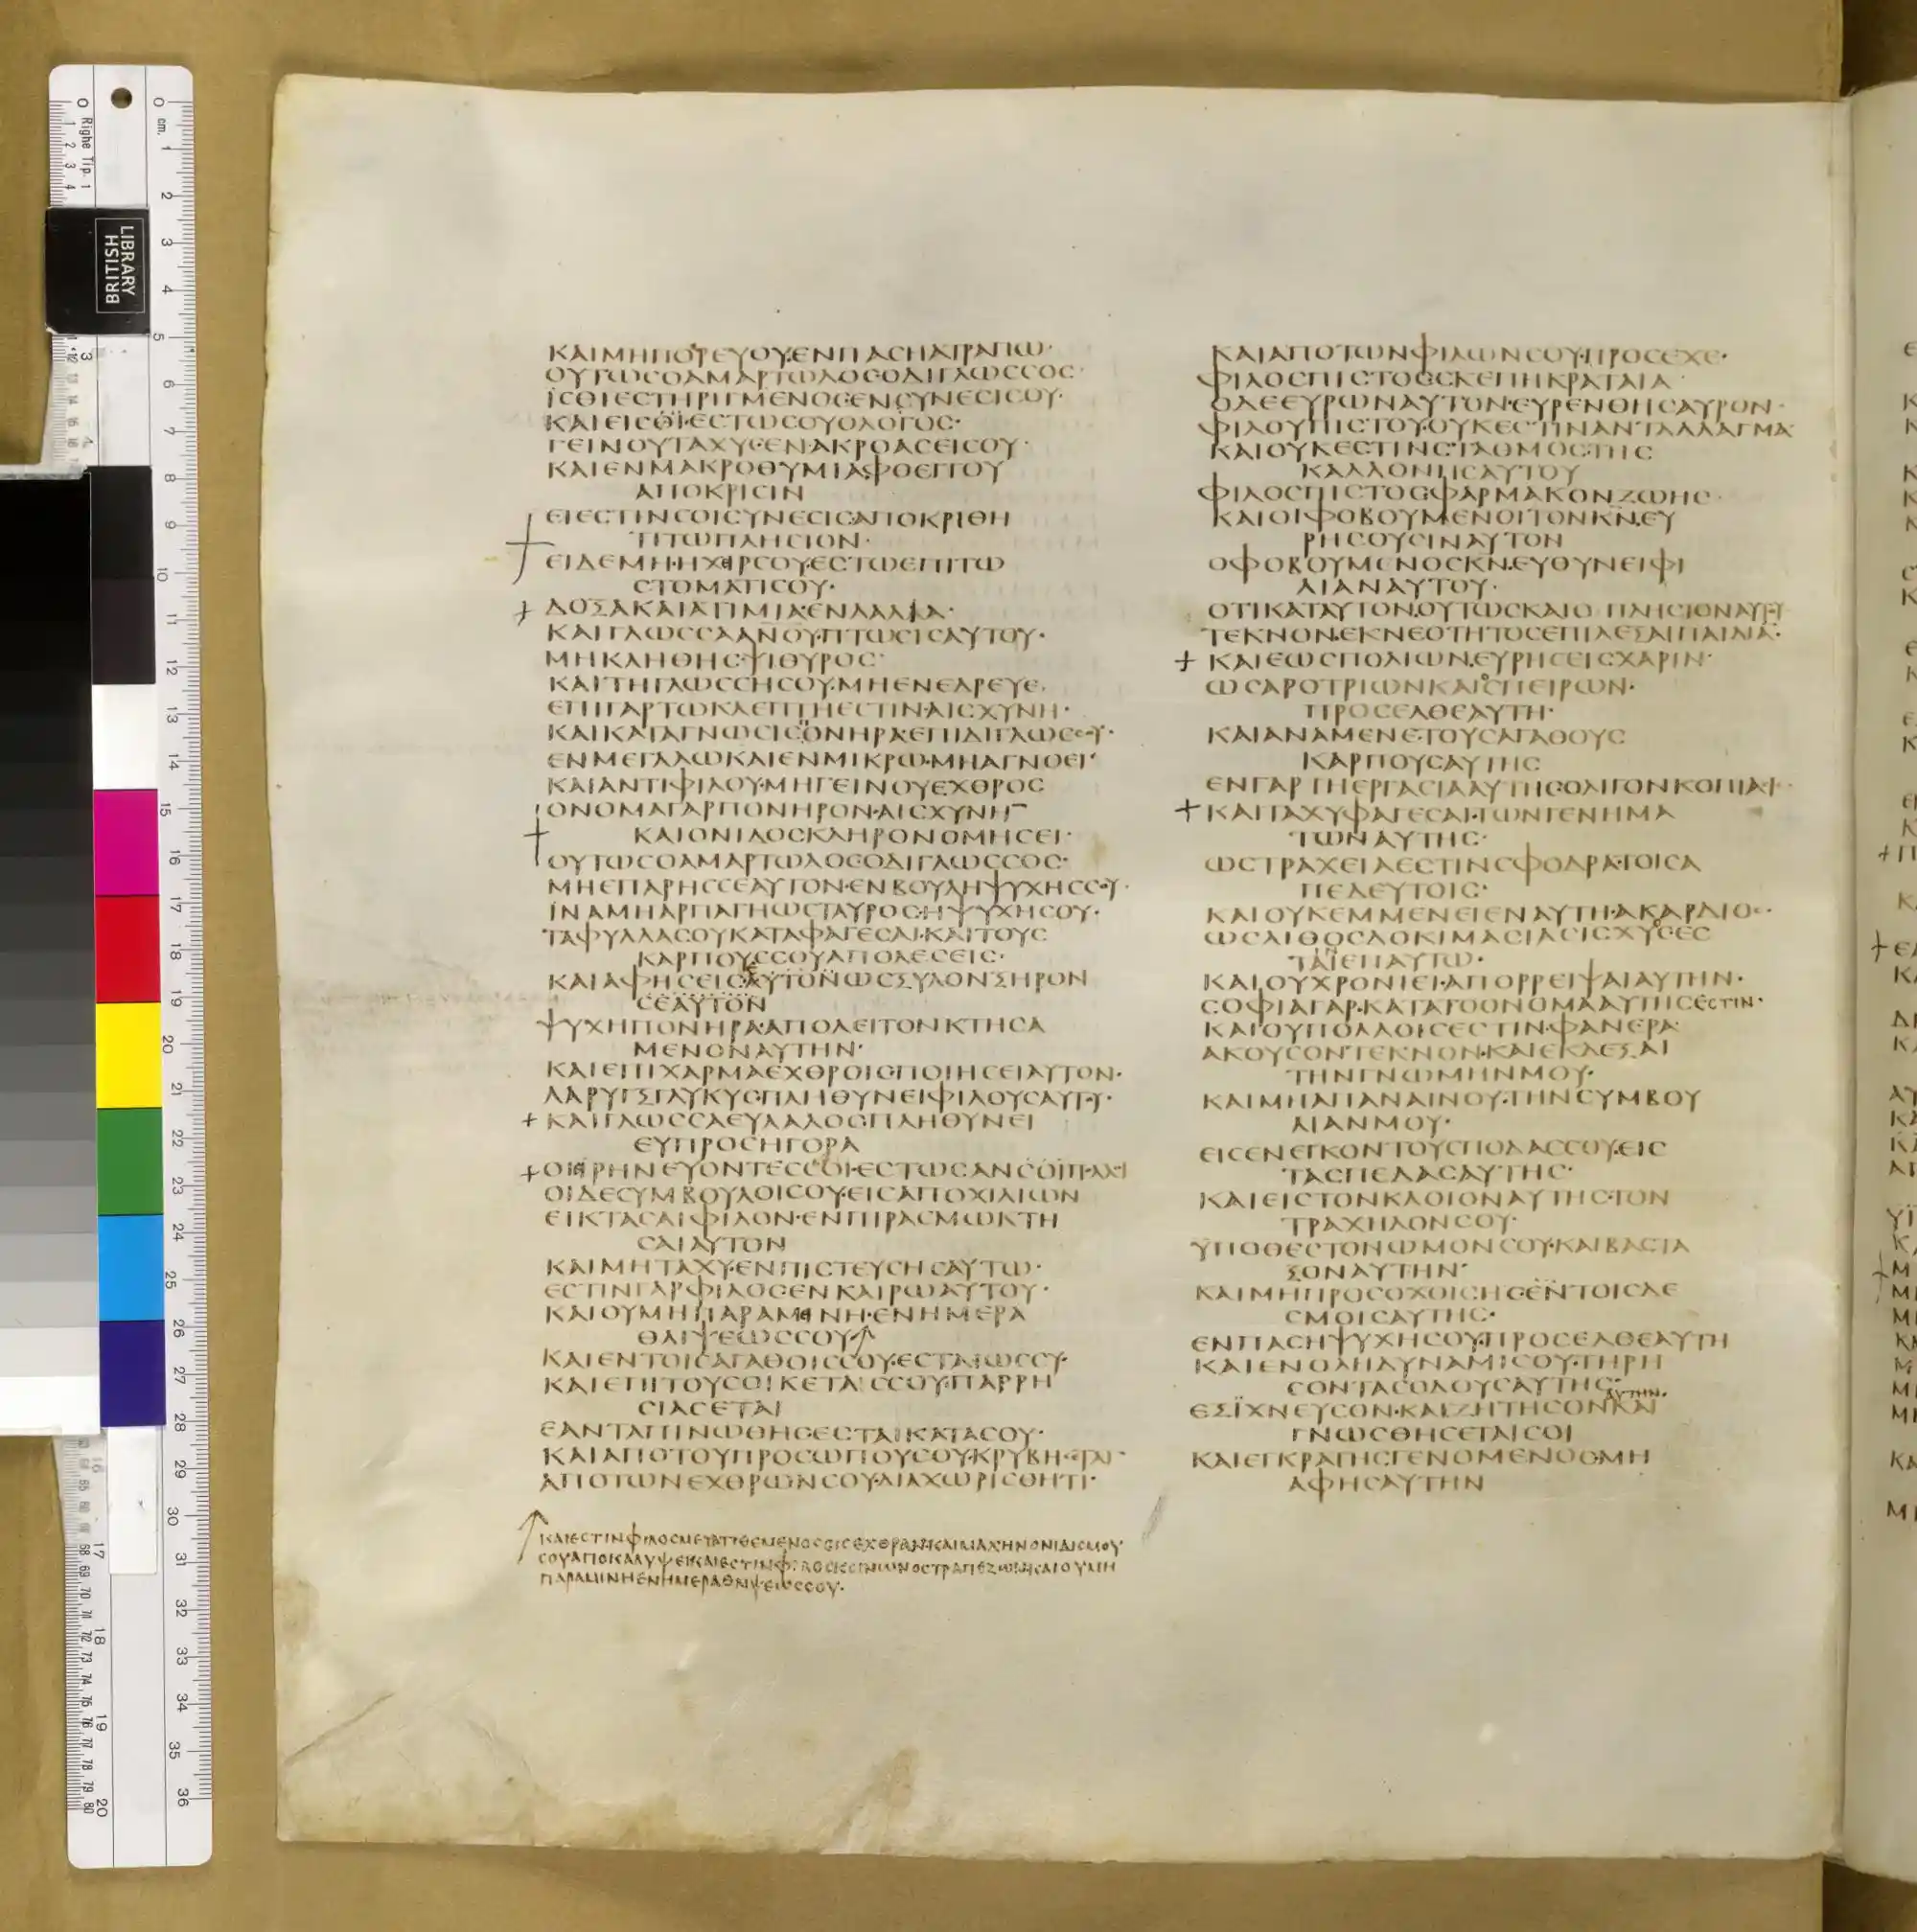 ΚΑΙΜΗΠΟΡΕΥΟΥ·ΕΝΠΑϹΗΑΤΡΑΠΩ·
ΟΥΤΩϹΟΑΜΑΡΤΩΛΟϹΟΔΙΓΛΩϹϹΟϹ·
ΪϹΘΙΕϹΤΗΡΙΓΜΕΝΟϹΕΝϹΥΝΕϹΙϹΟΥ·
ΚΑΙΕΙϹΘΪ·ΕϹΤΩϹΟΥΟΛΟΓΟϹ·
ΓΕΙΝΟΥΤΑΧΥϹ·ΕΝΑΚΡΟΑϹΕΙϹΟΥ·
ΚΑΙΕΝΜΑΚΡΟΘΥΜΙΑ·ΦΘΕΓΓΟΥ
ΑΠΟΚΡΙϹΙΝ
ΕΙΕϹΤΙΝϹΟΙϹΥΝΕϹΙϹ·ΑΠΟΚΡΙΘΗ
ΤΙΤΩΠΛΗϹΙΟΝ·
ΕΙΔΕΜΗ·ΗΧΕΙΡϹΟΥ·ΕϹΤΩΕΠΙΤΩ
ϹΤΟΜΑΤΙϹΟΥ·
ΔΟΞΑΚΑΙΑΤΙΜΙΑ·ΕΝΛΑΛΙΑ·
ΚΑΙΓΛΩϹϹΑΑΝΟΥ·ΠΤΩϹΙϹΑΥΤΟΥ·
ΜΗΚΛΗΘΗϹ·ΨΙΘΥΡΟϹ·
ΚΑΙΤΗΓΛΩϹϹΗϹΟΥ·ΜΗΕΝΕΔΡΕΥΕ·
ΕΠΙΓΑΡΤΩΚΛΕΠΤΗΕϹΤΙΝ·ΑΙϹΧΥΝΗ·
ΚΑΙΚΑΤΑΓΝΩϹΙϹΠΟΝΗΡΑ·ΕΠΙΔΙΓΛΩϹϹΟΥ·
ΕΝΜΕΓΑΛΩΚΑΙΕΝΜΙΚΡΩ·ΜΗΑΓΝΟΕΙ·
ΚΑΙΑΝΤΙΦΙΛΟΥ·ΜΗΓΕΙΝΟΥΕΧΘΡΟϹ
ΟΝΟΜΑΓΑΡΠΟΝΗΡΟΝ·ΑΙϹΧΥΝΗ
ΚΑΙΟΝΙΔΟϹΚΛΗΡΟΝΟΜΗϹΕΙ·
ΟΥΤΩϹΟΑΜΑΡΤΩΛΟϹΟΔΙΓΛΩϹϹΟϹ·
ΜΗΕΠΑΡΗϹϹΕΑΥΤΟΝ·ΕΝΒΟΥΛΗΨΥΧΗϹϹΟΥ·
ΪΝΑΜΗΑΡΠΑΓΗΩϹΤΑΥΡΟϹ·ΗΨΥΧΗϹΟΥ·
ΤΑΦΥΛΛΑϹΟΥΚΑΤΑΦΑΓΕϹΑΙ·ΚΑΙΤΟΥϹ
ΚΑΡΠΟΥϹϹΟΥΑΠΟΛΕϹΕΙϹ·
ΚΑΙΑΦΗϹΕΙϹΑΥΤΟΝΩϹΞΥΛΟΝΞΗΡΟΝ
ϹΕΑΥΤΟΝ
ΨΥΧΗΠΟΝΗΡΑ·ΑΠΟΛΕΙΤΟΝΚΤΗϹΑ
ΜΕΝΟΝΑΥΤΗΝ·
ΚΑΙΕΠΙΧΑΡΜΑΕΧΘΡΟΙϹΠΟΙΗϹΕΙΑΥΤΟΝ·
ΛΑΡΥΓΞΓΛΥΚΥϹΠΛΗΘΥΝΕΙΦΙΛΟΥϹΑΥΤΟΥ·
ΚΑΙΓΛΩϹϹΑΕΥΛΑΛΟϹΠΛΗΘΥΝΕΙ
ΕΥΠΡΟϹΗΓΟΡΑ
ΟΙΕΙΡΗΝΕΥΟΝΤΕϹϹΟΙ·ΕϹΤΩϹΑΝϹΟΙΠΟΛΛΟΙ
ΟΙΔΕϹΥΜΒΟΥΛΟΙϹΟΥ·ΕΙϹΑΠΟΧΙΛΙΩΝ
ΕΙΚΤΑϹΑΙΦΙΛΟΝ·ΕΝΠΙΡΑϹΜΩΚΤΗ
ϹΑΙΑΥΤΟΝ
ΚΑΙΜΗΤΑΧΥ·ΕΝΠΙϹΤΕΥϹΗϹΑΥΤΩ·
ΕϹΤΙΝΓΑΡΦΙΛΟϹΕΝΚΑΙΡΩΑΥΤΟΥ·
ΚΑΙΟΥΜΗΠΑΡΑΜΕΙΝΗ·ΕΝΗΜΕΡΑ
ΘΛΙΨΕΩϹϹΟΥ·
ΚΑΙΕΝΤΟΙϹΑΓΑΘΟΙϹϹΟΥ·ΕϹΤΑΙΩϹϹΥ·
ΚΑΙΕΠΙΤΟΥϹΟΙΚΕΤΑϹϹΟΥ·ΠΑΡΡΗ
ϹΙΑϹΕΤΑΙ
ΕΑΝΤΑΠΙΝΩΘΗϹΕϹΤΑΙΚΑΤΑϹΟΥ·
ΚΑΙΑΠΟΤΟΥΠΡΟϹΩΠΟΥϹΟΥ·ΚΡΥΒΗϹΕΤΑΙ·
ΑΠΟΤΩΝΕΧΘΡΩΝϹΟΥ·ΔΙΑΧΩΡΙϹΘΗΤΙ·
ΚΑΙΕϹΤΙΝΦΙΛΟϹΜΕΤΑΤΙΘΕΜΕΝΟϹΕΙϹΕΧΘΡΑΝ·ΚΑΙΜΑΧΗΝΟΝΙΔΙϹΜΟΥ
ϹΟΥΑΠΟΚΑΛΥΨΕΙ·ΚΑΙΕϹΤΙΝΦΙΛΟϹΚΟΙΝΩΝΟϹΤΡΑΠΕΖΩΝ·ΚΑΙΟΥΜΗ
ΠΑΡΑΜΙΝΗΕΝΗΜΕΡΑΘΛΙΨΕΩϹϹΟΥ·
ΚΑΙΑΠΟΤΩΝΦΙΛΩΝϹΟΥ·ΠΡΟϹΕΧΕ·
ΦΙΛΟϹΠΙϹΤΟϹϹΚΕΠΗΚΡΑΤΑΙΑ·
ΟΔΕΕΥΡΩΝΑΥΤΟΝ·ΕΥΡΕΝΘΗϹΑΥΡΟΝ·
ΦΙΛΟΥΠΙϹΤΟΥ·ΟΥΚΕϹΤΙΝΑΝΤΑΛΛΑΓΜΑ·
ΚΑΙΟΥΚΕϹΤΙΝϹΤΑΘΜΟϹ·ΤΗϹ
ΚΑΛΛΟΝΗϹΑΥΤΟΥ
ΦΙΛΟϹΠΙϹΤΟϹΦΑΡΜΑΚΟΝΖΩΗϹ·
ΚΑΙΟΙΦΟΒΟΥΜΕΝΟΙΤΟΝΚΝ·ΕΥ
ΡΗϹΟΥϹΙΝΑΥΤΟΝ
ΟΦΟΒΟΥΜΕΝΟϹΚΝ·ΕΥΘΥΝΕΙΦΙ
ΛΙΑΝΑΥΤΟΥ·
ΟΤΙΚΑΤΑΥΤΟΝ·ΟΥΤΩϹΚΑΙΟΠΛΗϹΙΟΝΑΥΤΟΥ
ΤΕΚΝΟΝ·ΕΚΝΕΟΤΗΤΟϹΕΠΙΛΕΞΑΙΠΑΙΔΙΑ·
ΚΑΙΕΩϹΠΟΛΙΩΝ·ΕΥΡΗϹΕΙϹΧΑΡΙΝ·
ΩϹΑΡΟΤΡΙΩΝΚΑΙΟϹΠΕΙΡΩΝ·
ΠΡΟϹΕΛΘΕΑΥΤΗ·
ΚΑΙΑΝΑΜΕΝΕ·ΤΟΥϹΑΓΑΘΟΥϹ
ΚΑΡΠΟΥϹΑΥΤΗϹ
ΕΝΓΑΡΤΗΕΡΓΑϹΙΑΑΥΤΗϹΟΛΙΓΟΝΚΟΠΙΑϹΙϹ·
ΚΑΙΤΑΧΥΦΑΓΕϹΑΙ·ΤΩΝΓΕΝΗΜΑ
ΤΩΝΑΥΤΗϹ·
ΩϹΤΡΑΧΕΙΑΕϹΤΙΝϹΦΟΔΡΑ·ΤΟΙϹΑ
ΠΕΔΕΥΤΟΙϹ·
ΚΑΙΟΥΚΕΜΜΕΝΕΙΕΝΑΥΤΗ·ΑΚΑΡΔΙΟϹ·
ΩϹΛΙΘΟϹΔΟΚΙΜΑϹΙΑϹΙϹΧΥΟϹΕϹ
ΤΑΙΕΠΑΥΤΩ·
ΚΑΙΟΥΧΡΟΝΙΕΙ·ΑΠΟΡΡΕΙΨΑΙΑΥΤΗΝ·
ϹΟΦΙΑΓΑΡ·ΚΑΤΑΤΟΟΝΟΜΑΑΥΤΗϹΕϹΤΙΝ·
ΚΑΙΟΥΠΟΛΛΟΙϹΕϹΤΙΝ·ΦΑΝΕΡΑ·
ΑΚΟΥϹΟΝΤΕΚΝΟΝ·ΚΑΙΕΚΛΕΞΑΙ
ΤΗΝΓΝΩΜΗΝΜΟΥ·
ΚΑΙΜΗΑΠΑΝΑΙΝΟΥ·ΤΗΝϹΥΜΒΟΥ
ΛΙΑΝΜΟΥ·
ΕΙϹΕΝΕΓΚΟΝΤΟΥϹΠΟΔΑϹϹΟΥ·ΕΙϹ
ΤΑϹΠΕΔΑϹΑΥΤΗϹ·
ΚΑΙΕΙϹΤΟΝΚΛΟΙΟΝΑΥΤΗϹ·ΤΟΝ
ΤΡΑΧΗΛΟΝϹΟΥ·
ΥΠΟΘΕϹΤΟΝΩΜΟΝϹΟΥ·ΚΑΙΒΑϹΤΑ
ΞΟΝΑΥΤΗΝ·
ΚΑΙΜΗΠΡΟϹΟΧΘΙϹΗϹΕΝΤΟΙϹΔΕ
ϹΜΟΙϹΑΥΤΗϹ·
ΕΝΠΑϹΗΨΥΧΗϹΟΥ·ΠΡΟϹΕΛΘΕΑΥΤΗ
ΚΑΙΕΝΟΛΗΔΥΝΑΜΙϹΟΥ·ΤΗΡΗ
ϹΟΝΤΑϹΟΔΟΥϹΑΥΤΗϹ·
ΑΥΤΗΝ·
ΕΞΪΧΝΕΥϹΟΝ·ΚΑΙΖΗΤΗϹΟΝΚΑΙ
ΓΝΩϹΘΗϹΕΤΑΙϹΟΙ
ΚΑΙΕΓΚΡΑΤΗϹΓΕΝΟΜΕΝΟϹ·ΜΗ
ΑΦΗϹΑΥΤΗΝ
BRITISH
LIBRARY
Righe Tip. 1
cm.